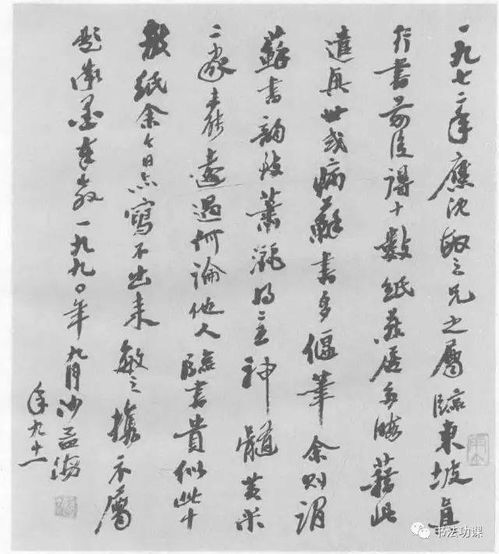 一九七二年應沈敏之兄之屬臨東坡真
行書前後得十數紙燕居多暇藉此
遣興世或病蘇書多偃筆余則謂
蘇書韻致蕭灑為主神髓黃米
二家未能遠過何論他人臨書貴似此十
數紙余今日亦寫不出來敏之攜示屬
題漸墨奉教一九九〇年九月沙孟海
年九十一
书法功课